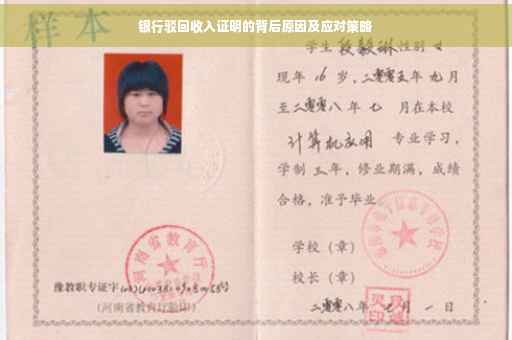 银行驳回收入证明的背后原因及应对策略
样本
学生段毅琳性别女
现年16岁，二零零五年九月
至二零零八年七月在本校
计算机应用专业学习，
学制三年，修业期满，成绩
合格，准予毕业。
学校（章）
校长（章）
二零零八年七月一日
河南省教育厅
豫教职专证字
（河南省教育厅验印）